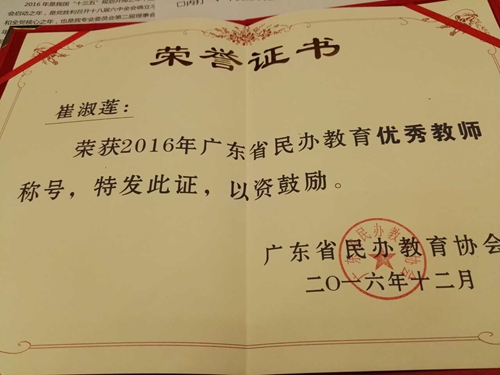 2016年是我国“十三五”规划开局之年
荣誉证书
崔淑莲：
荣获2016年广东省民办教育优秀教师
称号，特发此证，以资鼓励。
广东省民办教育协会
二〇一六年十二月
广东省民办教育协会